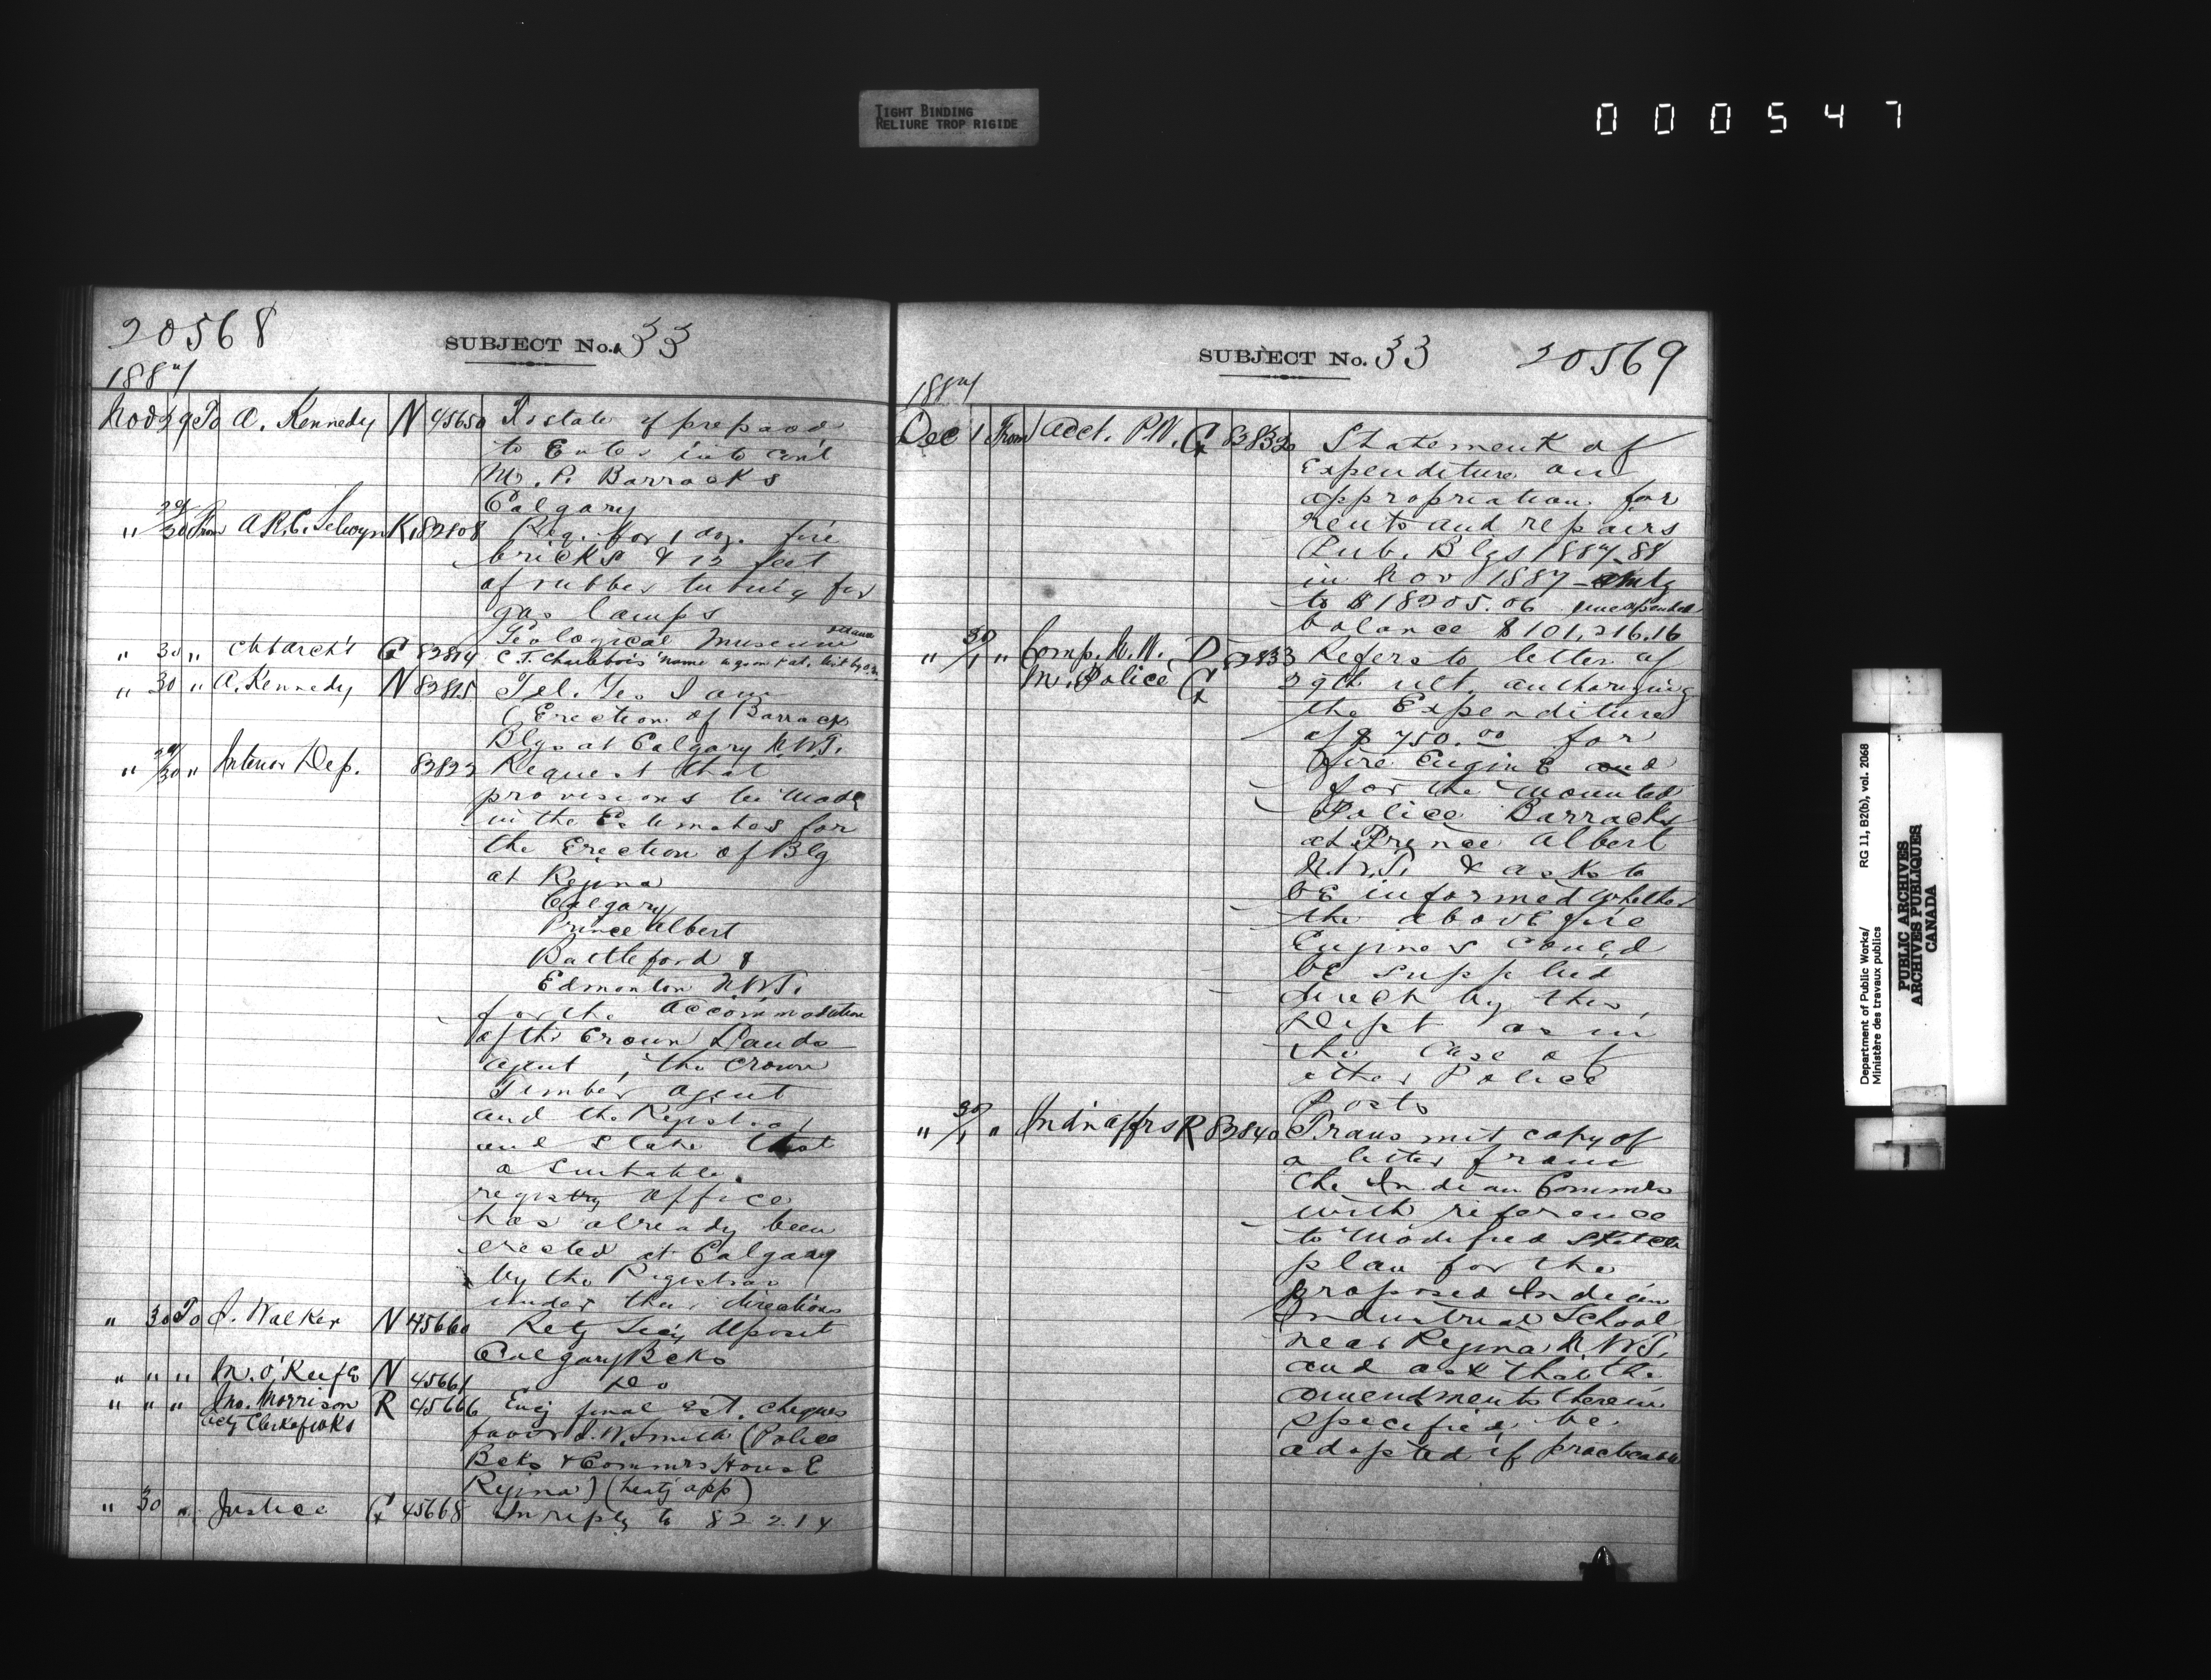 TIGHT BINDING
RELIURE TROP RIGIDE
000547
20568
SUBJECT No. 33
1887
Nov 29 To A. Kennedy N 45650 To state if prepared
to Enter into cont
M. P. Barracks
Calgary
" 29/30 From A.R.C. Selwyn K 82808 Req. for 1 doz. fire
bricks & 12 feet
of rubber tubing for
gas lamps
Geological Museum Ottawa
" 30 " Ch Arch't G 82814 C. T. Charlebois' name
" 30 " A. Kennedy N 82815 Tel. Yes I am
(Erection of Barrack
Blgs at Calgary N.W.T.
" 29/30 " Interior Dep. 82822 Request that
provisions be made
in the Estimates for
the Erection of Blg
at Regina
Calgary
Prince Albert
Battleford &
Edmonton N.W.T.
for the accommodation
of the Crown Lands
agent, the Crown
Timber agent
and the Registrar
and state that
a suitable
registry office
has already been
erected at Calgary
by the Registrar
under their directions
" 30 To J. Walker N 45660 Retg Secy deposit
Calgary Bcks
" " " M. O'Keefe N 45661 Do
" " " Jno. Morrison R 45666 Encg final Est. cheques
actg Clerk of Wks favor J. W. Smith (Police
Bcks & Commrs House
Regina) (heatg app)
" 30 " Justice G 45668 In reply to 82214
SUBJECT No. 33 20569
1887
Dec 1 From Acct. P.W. G 82832 Statement of
Expenditure on
appropriation for
rents and repairs
Pub. Blgs 1887-88
in Nov 1887 - amtg
to $18205.06 unexpended
balance $101,216.16
" 30/1 " Comp. N.W. D 82833 Refers to letter of
M. Police G 29th ult. authorizing
the Expenditure
of $750.00 for
Fire Engine and
for the mounted
Police Barracks
at Prince Albert
N.W.T. & asks to
be informed whether
the above fire
Engines could
be supplied
direct by this
Dept as in
the case of
other Police
Posts
" 30/1 " Indn Affrs R 82840 Transmit copy of
a letter from
the Indian Commr
with reference
to modified sketch
plan for the
proposed Indian
Industrial School
near Regina N.W.T.
and ask that the
amendments therein
specified be
adopted if practicable
Department of Public Works/
Ministère des travaux publics
RG 11, B2(b), vol. 2068
PUBLIC ARCHIVES
ARCHIVES PUBLIQUES
CANADA